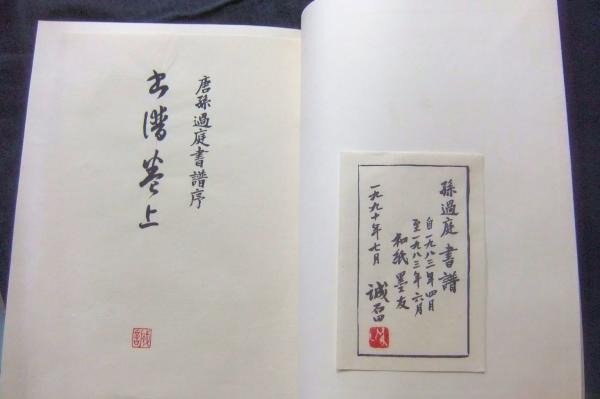 唐孫過庭書譜序
書譜卷上
孫過庭 書譜
自一九八三年四月
至一九八三年六月
和紙 墨友
一九九十年七月